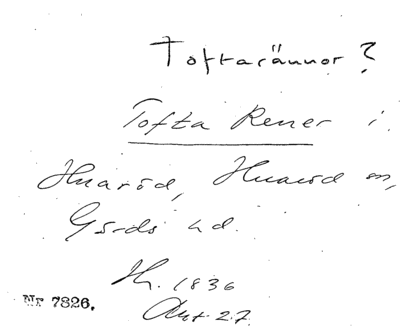 Toftarännor?
Tofta Rener i
Huaröd, Huaröd sn,
Gärds hd.
Hr. 1836
Akt 27.
Nr 7826.